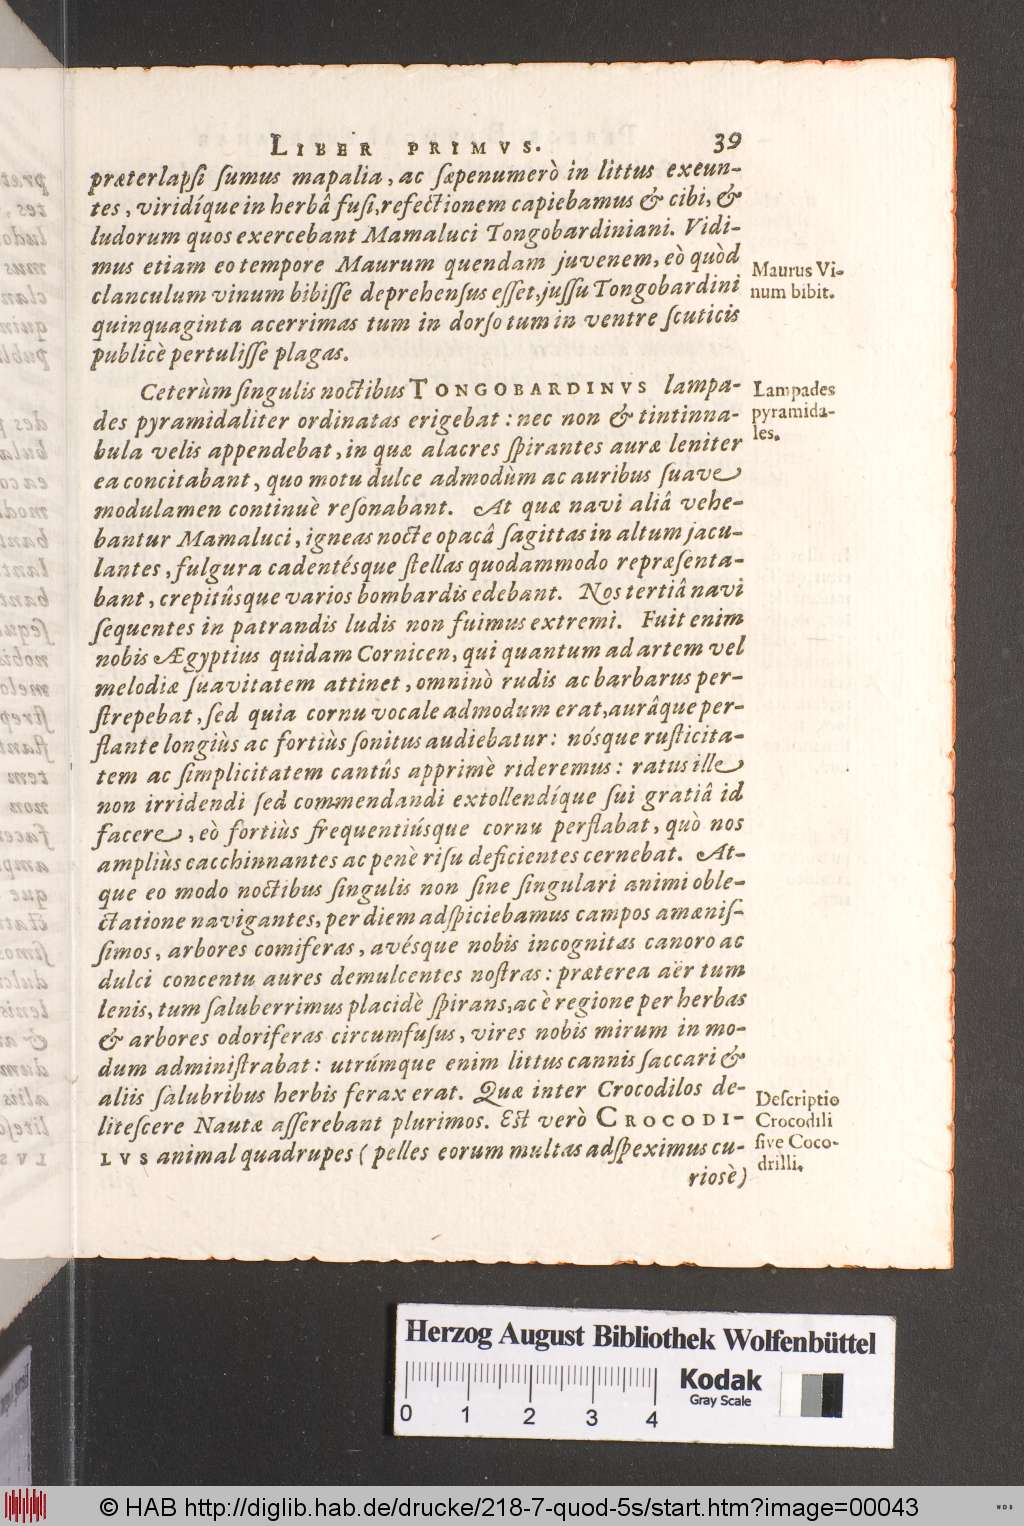 LIBER PRIMVS. 39
præterlapsi sumus mapalia, ac sæpenumerò in littus exeun-
tes, viridíque in herbâ fusi, refectionem capiebamus & cibi, &
ludorum quos exercebant Mamaluci Tongobardiniani. Vidi-
mus etiam eo tempore Maurum quendam juvenem, eò quòd
clanculum vinum bibisse deprehensus esset, jussu Tongobardini
quinquaginta acerrimas tum in dorso tum in ventre scuticis
publicè pertulisse plagas.
Maurus Vi-
num bibit.
Ceterùm singulis noctibus TONGOBARDINVS lampa-
des pyramidaliter ordinatas erigebat: nec non & tintinna-
bula velis appendebat, in quæ alacres spirantes auræ leniter
ea concitabant, quo motu dulce admodùm ac auribus suave
modulamen continuè resonabant. At quæ navi aliâ vehe-
bantur Mamaluci, igneas nocte opacâ sagittas in altum jacu-
lantes, fulgura cadentésque stellas quodammodo repræsenta-
bant, crepitûsque varios bombardis edebant. Nos tertiâ navi
sequentes in patrandis ludis non fuimus extremi. Fuit enim
nobis Ægyptius quidam Cornicen, qui quantum ad artem vel
melodiæ suavitatem attinet, omninò rudis ac barbarus per-
strepebat, sed quia cornu vocale admodum erat, aurâque per-
flante longiùs ac fortiùs sonitus audiebatur: nósque rusticita-
tem ac simplicitatem cantûs apprimè rideremus: ratus ille
non irridendi sed commendandi extollendíque sui gratiâ id
facere, eò fortiùs frequentiúsque cornu perflabat, quò nos
ampliùs cacchinnantes ac penè risu deficientes cernebat. At-
que eo modo noctibus singulis non sine singulari animi oble-
ctatione navigantes, per diem adspiciebamus campos amænis-
simos, arbores comiferas, avésque nobis incognitas canoro ac
dulci concentu aures demulcentes nostras: præterea aër tum
lenis, tum saluberrimus placidè spirans, ac è regione per herbas
& arbores odoriferas circumfusus, vires nobis mirum in mo-
dum administrabat: utrúmque enim littus cannis saccari &
aliis salubribus herbis ferax erat. Quæ inter Crocodilos de-
litescere Nautæ asserebant plurimos. Est verò CROCODI-
LVS animal quadrupes (pelles eorum multas adspeximus cu-
riosè)
Lampades
pyramida-
les.
Descriptio
Crocodili
sive Coco-
drilli.
Herzog August Bibliothek Wolfenbüttel
Kodak
Gray Scale
0 1 2 3 4
© HAB http://diglib.hab.de/drucke/218-7-quod-5s/start.htm?image=00043